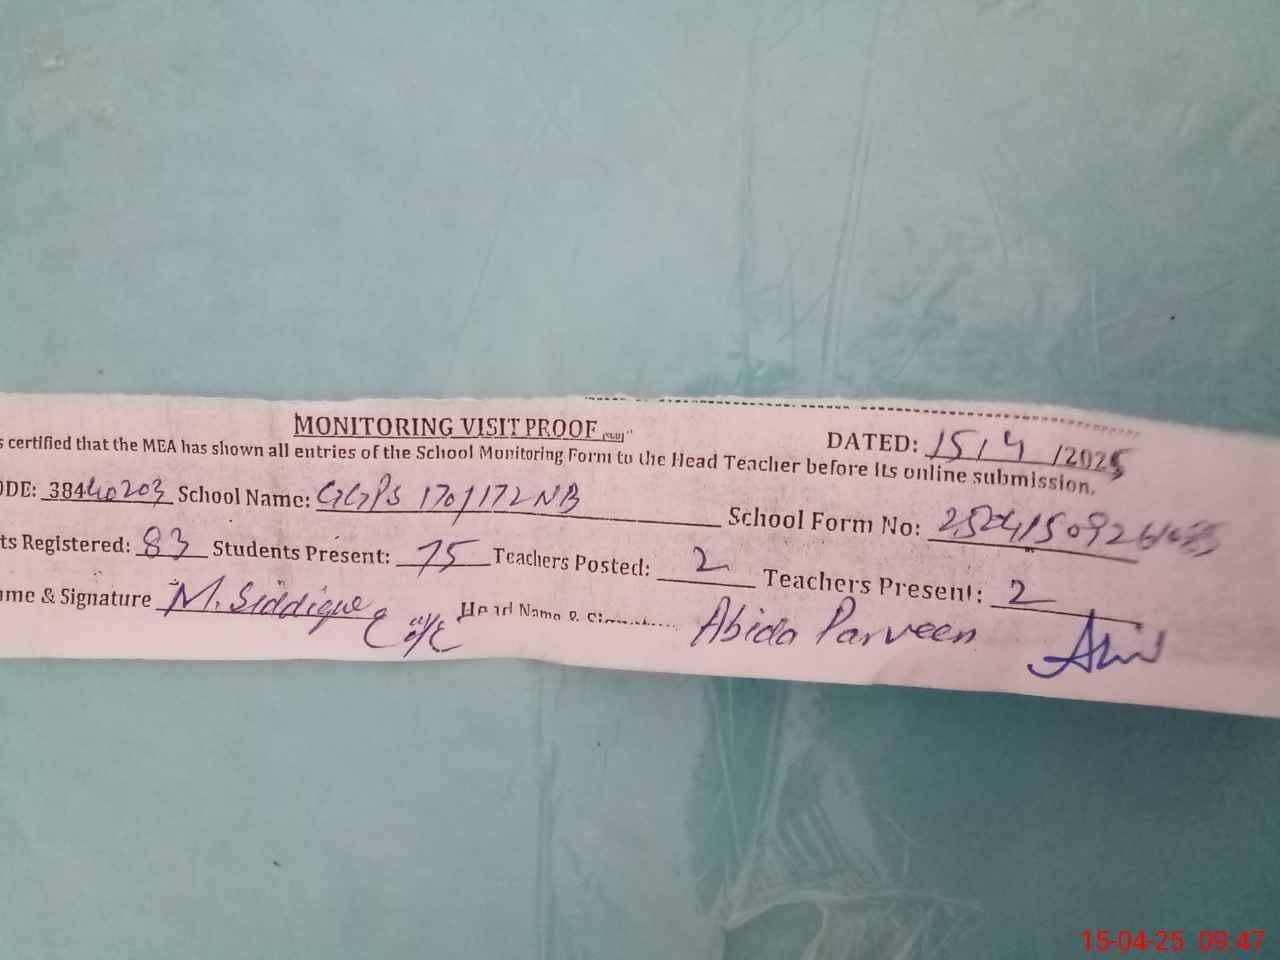 MONITORING VISIT PROOF
DATED: 15/4/2025
s certified that the MEA has shown all entries of the School Monitoring Form to the Head Teacher before its online submission.
ODE: 38440203 School Name: GGPS 170/172 NB School Form No:
ts Registered: 83 Students Present: 75 Teachers Posted: 2 Teachers Present: 2
me & Signature M. Siddique Head Name & Abida Parveen
15-04-25 09:47